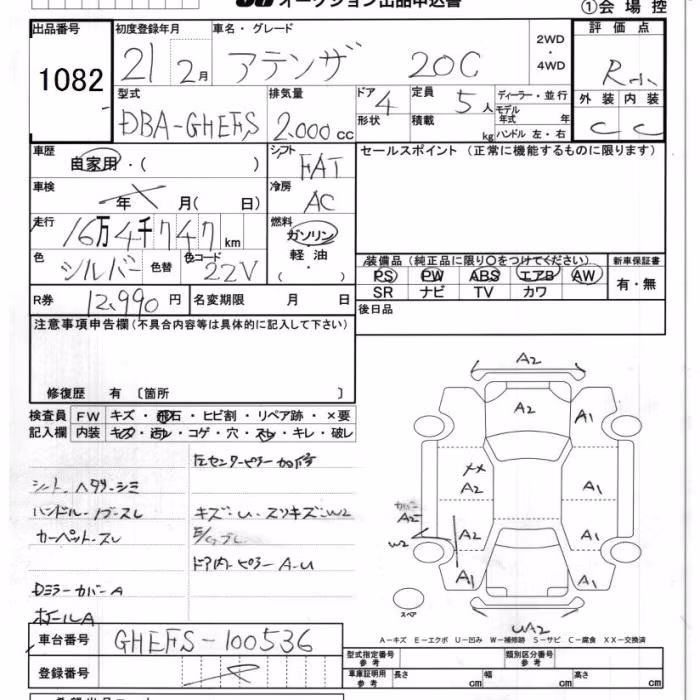 オークション出品申込書
①会場控
出品番号 1082
初度登録年月 21 2月
車名・グレード アテンザ 20C
2WD・4WD
評価点 R
外装 C 内装 C
型式 DBA-GHEFS
排気量 2.000cc
ドア 4 形状
定員 5人 積載 kg
ディーラー・並行
モデル年式 年
ハンドル 左・右
車歴 自家用・( )
シフト FAT
セールスポイント(正常に機能するものに限ります)
車検 年 月( 日)
冷房 AC
走行 16万4千747km
燃料 ガソリン 軽油 ・ ( )
色 シルバー 色替 色コード 22V
装備品(純正品に限り〇をつけてください) 新車保証書
PS PW ABS エアB AW
SR ナビ TV カワ
有・無
R券 12,990円 名変期限 月 日
後日品
注意事項申告欄(不具合内容等は具体的に記入して下さい)
修復歴 有〔箇所 〕
検査員 FW キズ・飛石・ヒビ割・リペア跡・×要
記入欄 内装 キズ・汚レ・コゲ・穴・スレ・キレ・破レ
左センターピラー
シート、ヘタリ-シミ
ハンドル-ノブ-スレ
キズ-U・スリキズ・W2
カーペット-スレ
ドア内-ピラー A-U
Dミラーカバー A
ホイールA
A2
A2
A1
XX
A2
A1
カバー
A2
W2
A2
A1
A1
A1
スペア
UA2
A-キズ E-エクボ U-凹み W-補修跡 S-サビ C-腐食 XX-交換済
車台番号 GHEFS-100536
登録番号
型式指定番号 参考
類別区分番号 参考
車庫証明用 参考 長さ cm 幅 cm 高さ cm